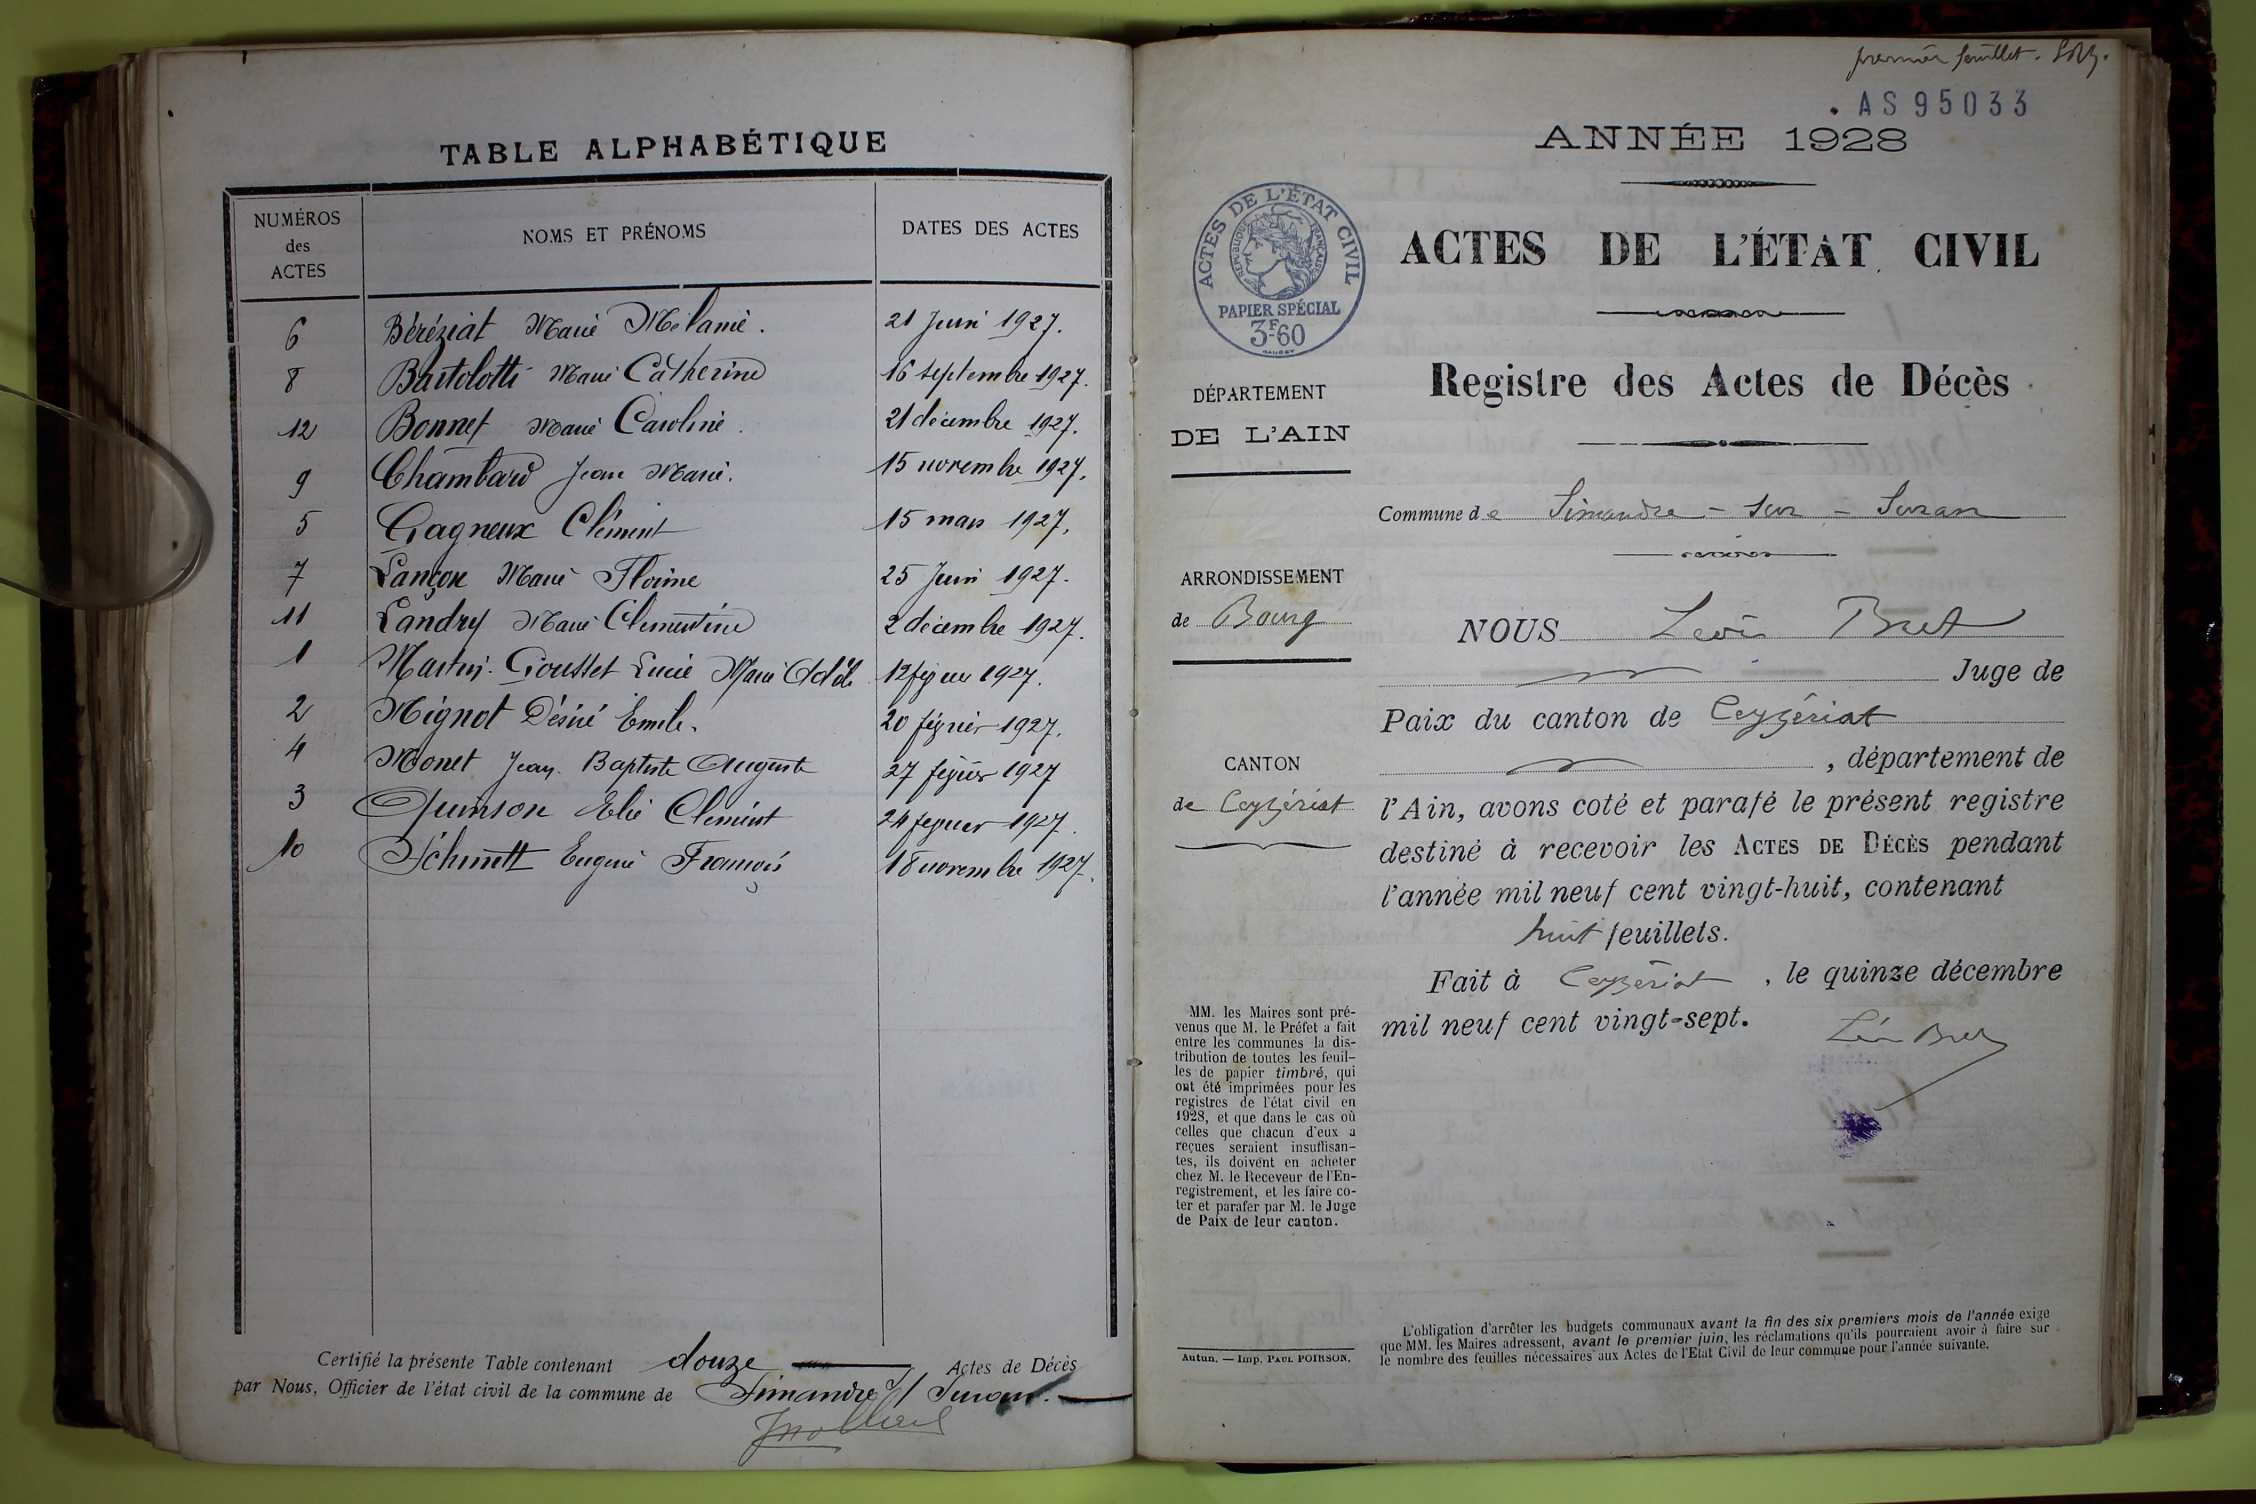 TABLE ALPHABÉTIQUE
NUMÉROS des ACTES
NOMS ET PRÉNOMS
DATES DES ACTES
6 Béréziat Marie Mélanie. 21 Juin 1927.
8 Bartolotti Marie Catherine 16 septembre 1927.
12 Bonnet Marie Caroline. 21 décembre 1927.
9 Chambard Jean Marie. 15 novembre 1927.
5 Gagneux Clément 15 mars 1927.
7 Lançon Marie Florine 25 Juin 1927.
11 Landry Marie Clementine 2 décembre 1927.
1 Martin-Gousset Lucie Marie Adèle 12 février 1927.
2 Mignot Désiré Emile. 20 février 1927.
4 Monet Jean Baptiste Auguste 27 février 1927
3 Quinson Elie Clement 24 fevrier 1927.
10 Schmitt Eugene François 18 novembre 1927.
Certifié la présente Table contenant douze Actes de Décès
par Nous, Officier de l'état civil de la commune de Simandre s/ Suran.
premier feuillet.
AS95033
ANNÉE 1928
ACTES DE L'ÉTAT CIVIL
RÉPUBLIQUE FRANÇAISE
PAPIER SPÉCIAL
3F60
ACTES DE L'ÉTAT CIVIL
Registre des Actes de Décès
DÉPARTEMENT
DE L'AIN
Commune de Simandre - sur - Suran
ARRONDISSEMENT
de Bourg
NOUS Léon Bret
Juge de
Paix du canton de Ceyzériat
, département de
CANTON
de Ceyzériat
l'Ain, avons coté et parafé le présent registre
destiné à recevoir les ACTES DE DÉCÈS pendant
l'année mil neuf cent vingt-huit, contenant
huit feuillets.
Fait à Ceyzériat, le quinze décembre
mil neuf cent vingt-sept.
Léon Bret
MM. les Maires sont pré-
venus que M. le Préfet a fait
entre les communes la dis-
tribution de toutes les feuil-
les de papier timbré, qui
ont été imprimées pour les
registres de l'état civil en
1928, et que dans le cas où
celles que chacun d'eux a
reçues seraient insuffisan-
tes, ils doivent en acheter
chez M. le Receveur de l'En-
registrement, et les faire co-
ter et parafer par M. le Juge
de Paix de leur canton.
Autun. — Imp. PAUL POIRSON.
L'obligation d'arrêter les budgets communaux avant la fin des six premiers mois de l'année exige
que MM. les Maires adressent, avant le premier juin, les réclamations qu'ils pourraient avoir à faire sur
le nombre des feuilles nécessaires aux Actes de l'Etat Civil de leur commune pour l'année suivante.